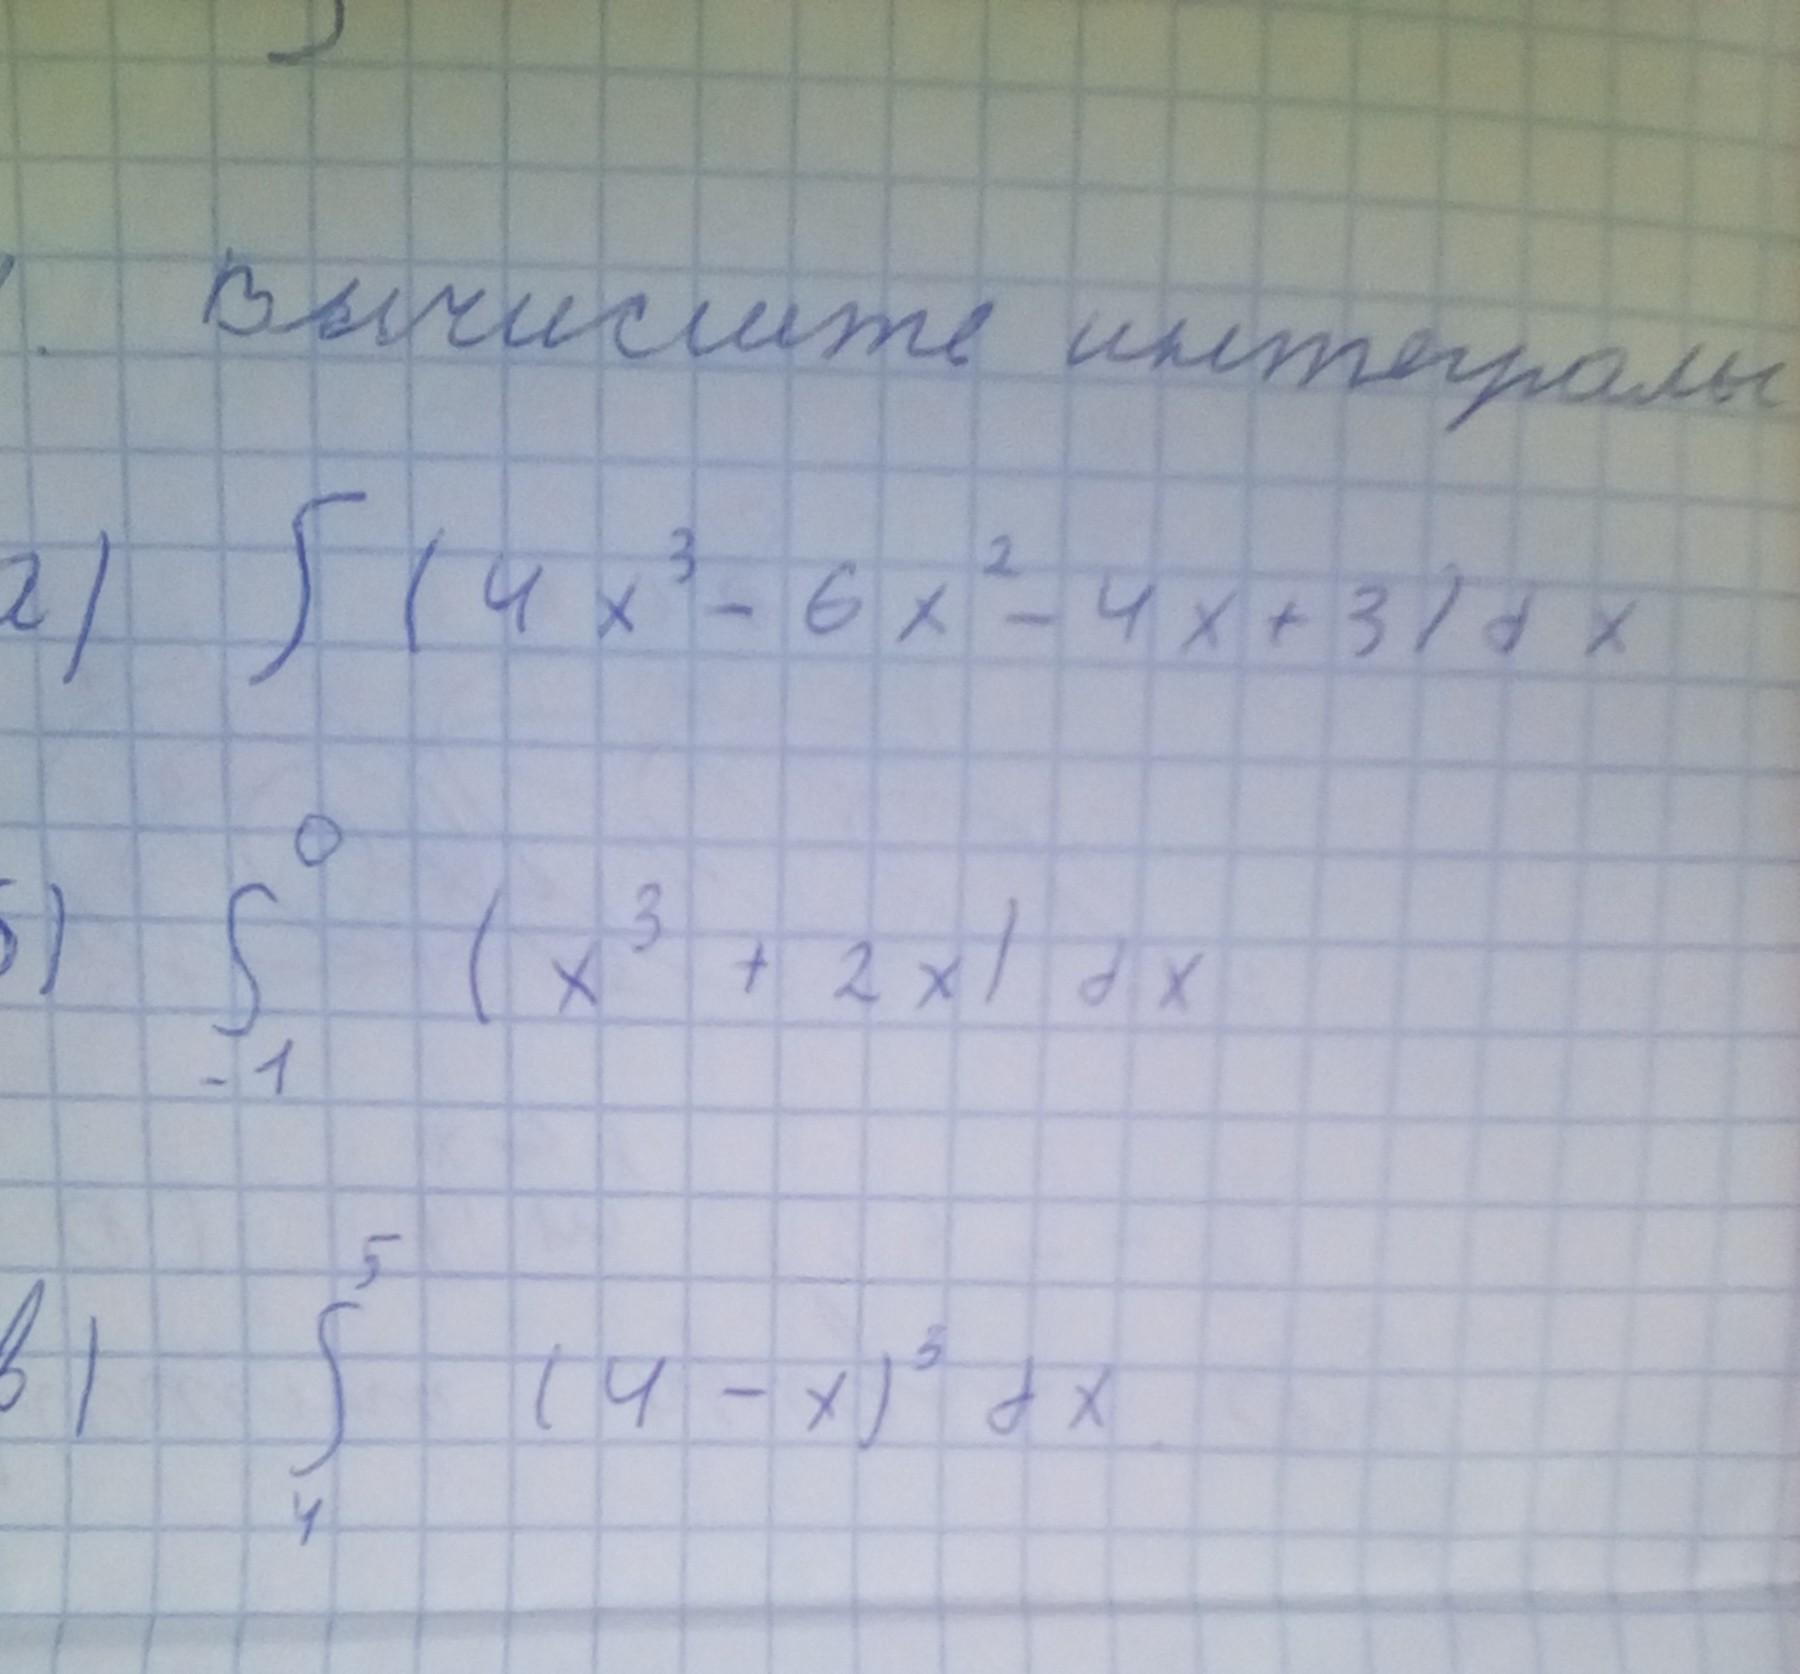 1. Вычислите интегралы
а) ∫ (4x³ - 6x² - 4x + 3) dx
б) ∫₋₁⁰ (x³ + 2x) dx
в) ∫₄⁵ (4 - x)³ dx